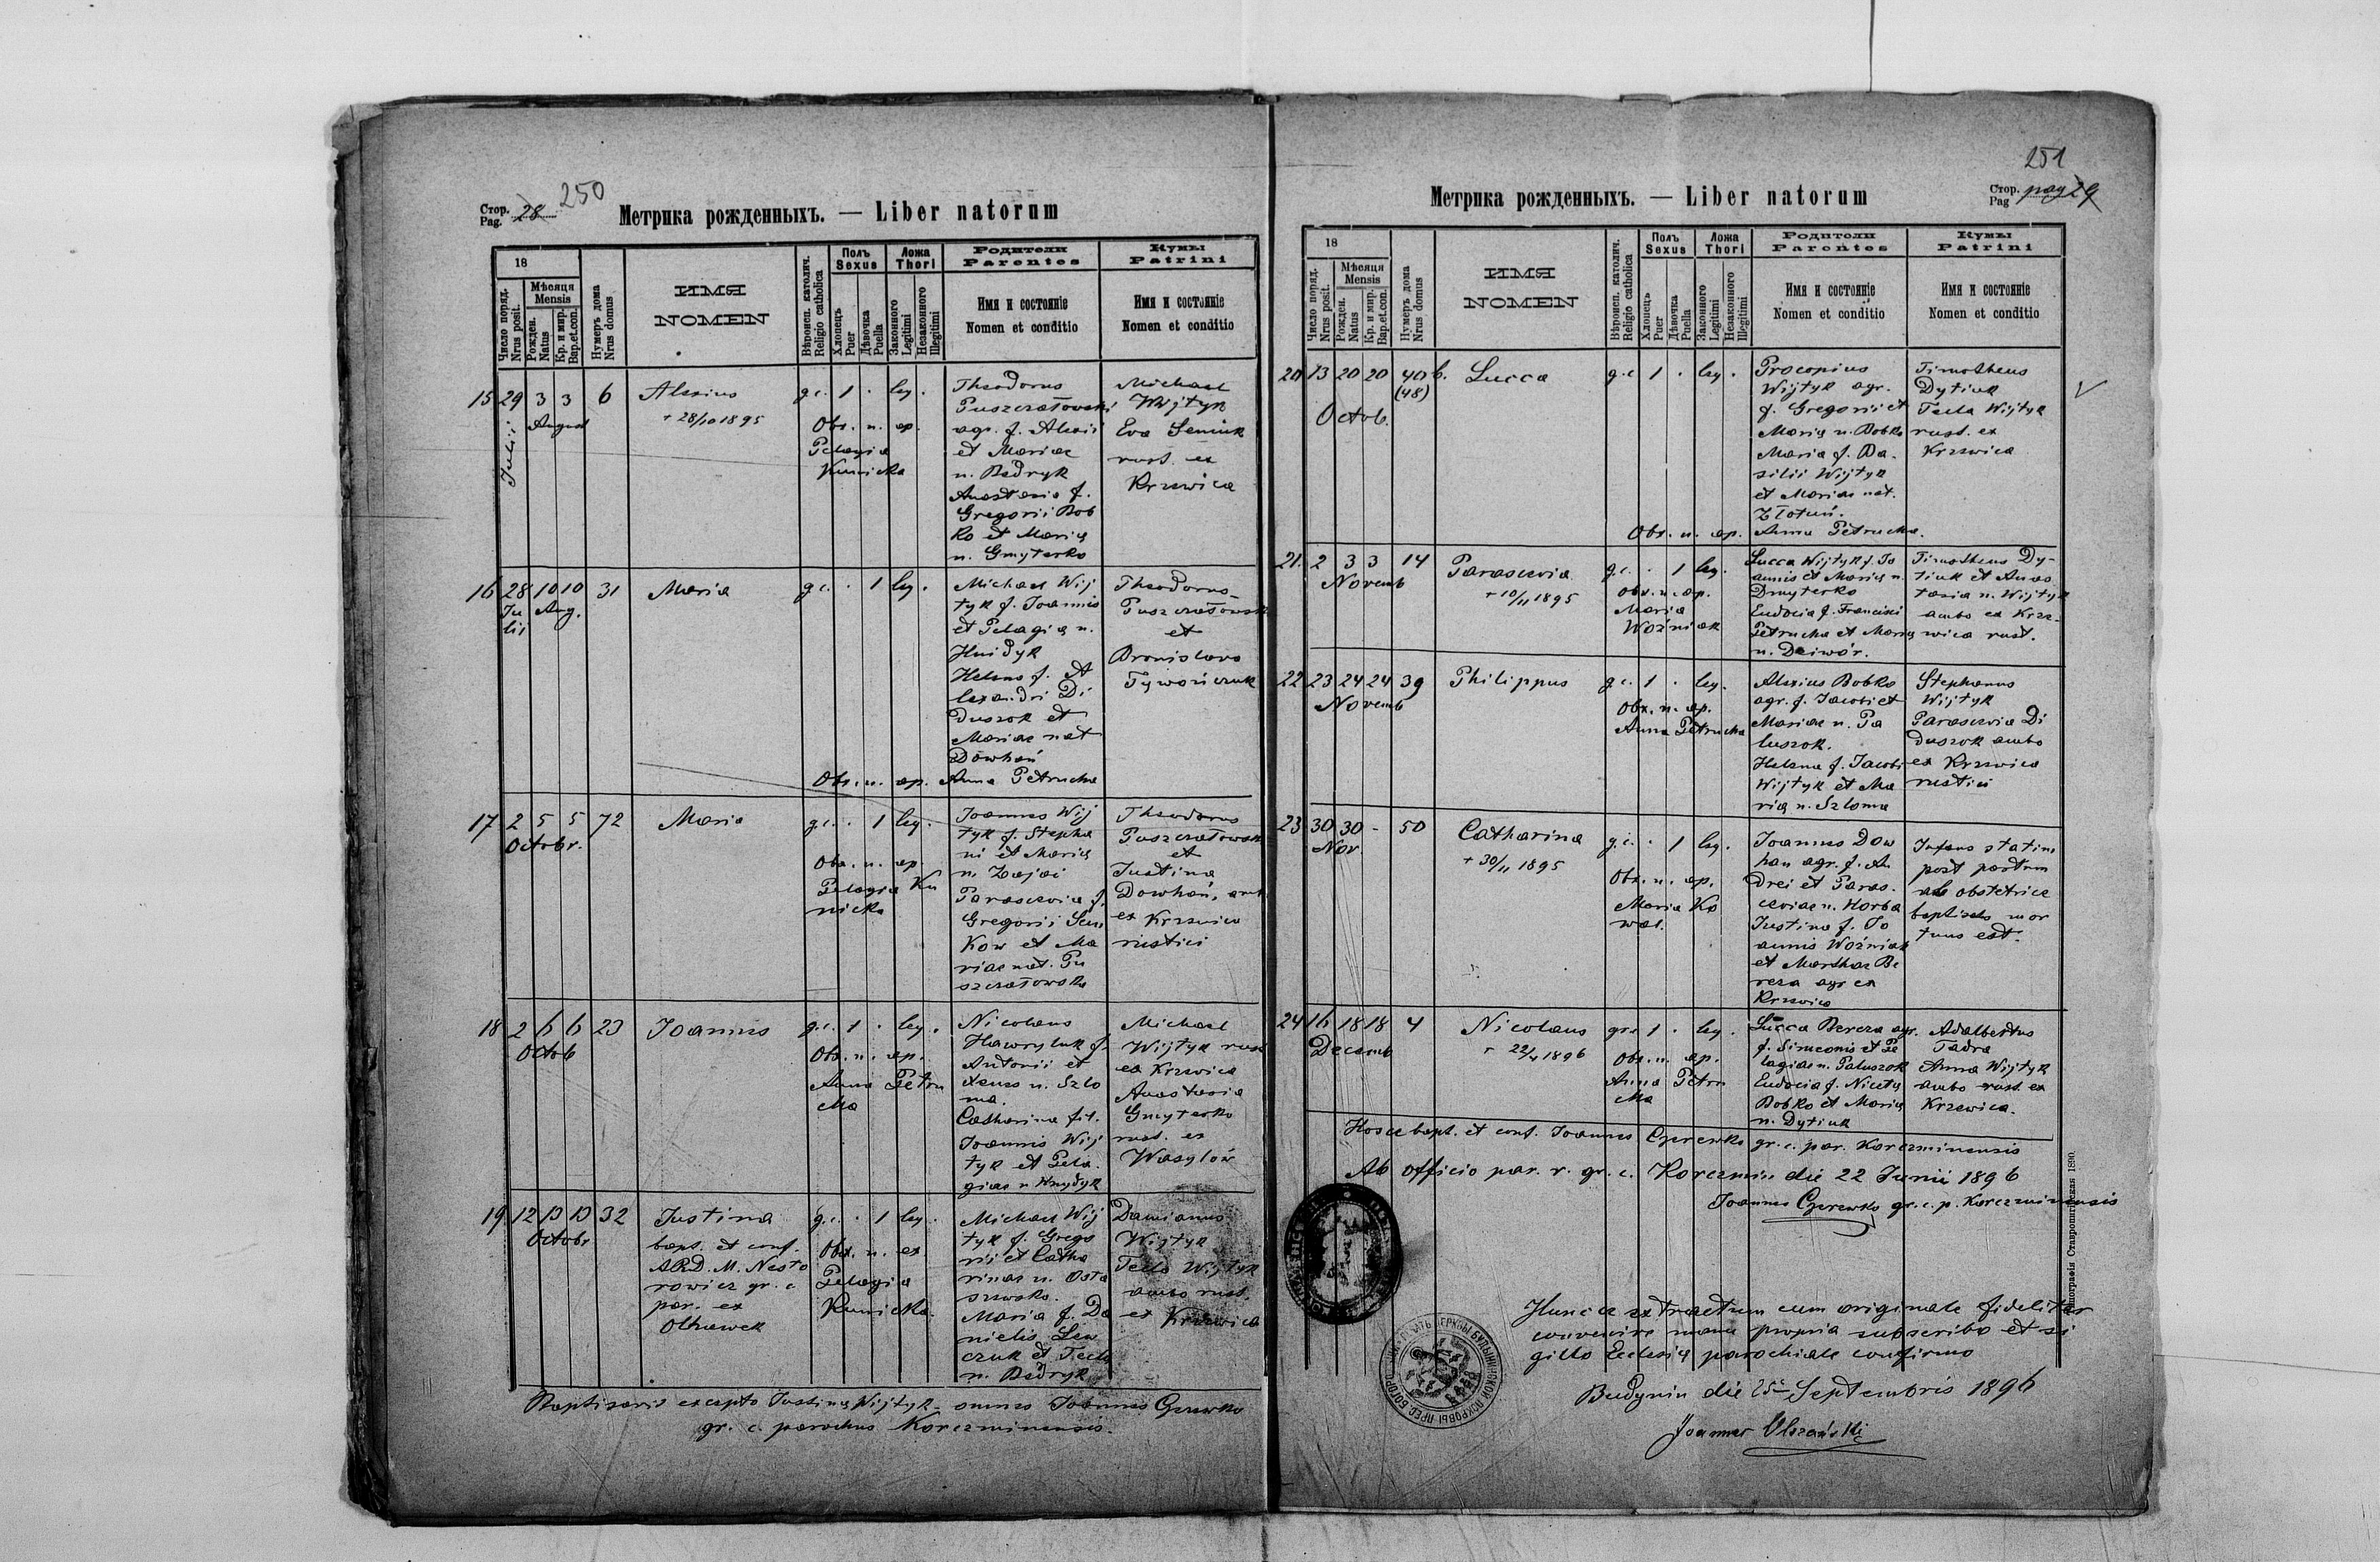 250
Стор. Pag. 28
Метрика рожденныхъ. — Liber natorum
18
Число поряд. Nrus posit.
Мѣсяця Mensis
Рожден. Natus
Кр. и мир. Bap.et.con.
Нумеръ дома Nrus domus
ИМЯ
NOMEN
Вѣроисп. католич. Religio catholica
Полъ Sexus
Хлопецъ Puer
Дѣвочка Puella
Ложа Thori
Законного Legitimi
Незаконного Illegitimi
Родители
Parentes
Имя и состоянiе
Nomen et conditio
Кумы
Patrini
Имя и состоянiе
Nomen et conditio
15 29 3 3 6 Alexius g.c. 1 · leg.
Julii August
+ 28/10 1895
Obs. n. ap.
Pelagia
Kunicka
Theodorus
Puszczałowski
agr. f. Alexii
et Mariae
n. Bedryk
Anastasia f.
Gregorii Bob
ko et Marię
n. Gmyterko
Michael
Wijtyk
Eva Semiuk
rust. ex
Krzewica
16 28 10 10 31 Maria g.c. · 1 leg.
Ju Aug.
lii
Michael Wij
tyk f. Joannis
et Pelagię n.
Hnidyk
Helena f. A
lexandri Di
duszok et
Mariae nat
Dowhań
Obs. n. ap. Anna Petrucha
Theodorus
Puszczałowski
et
Bronislava
Tywończuk
17 2 5 5 72 Maria g.c. · 1 leg.
Octobr.
Obs. n. ap.
Pelagia Ku
nicka
Joannes Wij
tyk f. Stepha
ni et Marię
n. Zajac
Parascevia f.
Gregorii Sen
kow et Ma
riae nat. Pu
szczałowska
Theodorus
Puszczałowski
et
Justina
Dowhań, amb
ex Krzewica
rustici
18 2 6 6 23 Joannes g.c. 1 · leg.
Octob
Obs. n. ap.
Anna Petru
cha
Nicolaus
Hawryluk f.
Antonii et
Xenes n. Szlo
ma.
Catharina fil.
Joannis Wij
tyk et Pela
giae n Hnydyk
Michael
Wijtyk rust
ex Krzewica
Anastasia
Gmyterko
rust. ex
Wasylów
19 12 13 13 32 Justina g.c. · 1 leg.
Octobr
bapt. et conf.
ARD. M. Nesto
rowicz gr. c
par. ex
Obs. n. ex.
Pelagia
Kunicka.
Michael Wij
tyk f. Grego
rii et Catha
rinae n. Osta
szewska.
Maria f. Da
nielis Lew
czuk et Tecla
n. Bedryk
Damianus
Wijtyk
Tecla Wijtyk
ambo rust.
ex Krzewica
Baptisavit excepto Justinę Wijtyk - omnes Joannes Czerewko
gr. c. parochus Korczminensis.
251
Стор. Pag pag 29
Метрика рожденныхъ. — Liber natorum
18
Число поряд. Nrus posit.
Мѣсяця Mensis
Рожден. Natus
Кр. и мир. Bap.et.con.
Нумеръ дома Nrus domus
ИМЯ
NOMEN
Вѣроисп. католич. Religio catholica
Полъ Sexus
Хлопецъ Puer
Дѣвочка Puella
Ложа Thori
Законного Legitimi
Незаконного Illegitimi
Родители
Parentes
Имя и состоянiе
Nomen et conditio
Кумы
Patrini
Имя и состоянiе
Nomen et conditio
20 13 20 20 40 b. Lucca g.c 1 · leg.
(48)
Octob.
Procopius
Wijtyk agr.
f. Gregorii et
Marię n. Bobko
Maria f. Ba-
silii Wijtyk
et Mariae nat.
Złotuń.
Obs. n. ap. Anna Petrucha.
Timotheus
Dytiuk
Tecla Wijtyk
rust. ex
Krzewica
21. 2 3 3 14 Parascevia g.c. · 1 leg.
Novemb
+ 10/11 1895
obs. n. ap.
Maria
Woźniak
Lucca Wijtyk f. Jo
annis et Marię n.
Dmyterko
Eudocia f. Francisci
Petrucha et Marię
n. Dziwór.
Timotheus Dy-
tiuk et Anas
tasia n. Wijtyk
ambo ex Krze-
wica rust.
22 23 24 24 39 Philippus g.c. 1 · leg.
Novemb
Obs. n. ap.
Anna Petrucha
Alexius Bobko
agr. f. Jacobi et
Mariae n. Pa
luszok.
Helena f. Jacobi
Wijtyk et Ma
rię n. Szloma
Stephanus
Wijtyk
Parascevia Di
duszok ambo
ex Krzewica
rustici
23 30 30 - 50 Catharina g.c. · 1 leg.
Nov.
+ 30/11 1895
Obs. n. ap.
Maria Ko
wal.
Joannes Dow
han agr. f. An
drei et Paras.
ceviae n. Horba
Justina f. Jo
annis Woźniak
et Marthae Be
reza agr ex
Krzewica
Infans statim
post partum
ab obstetrice
baptisata mor
tuus est.
24 16 18 18 4 Nicolaus grc 1 · leg.
Decemb
+ 22/4 1896
Obs. n. ap.
Anna Petru
cha
Lucca Bereza agr.
f. Simeonis et Pe
lagiae n. Paluszok
Eudocia f. Nicetę
Bobko et Marię
n. Dytiuk
Adalbertus
Tadra
Anna Wijtyk
ambo rust. ex
Krzewica.
Hosce bapt. et conf. Joannes Czerewko gr. c. par. Korczminensis
Ab officio par. r. gr. c. Korczmin die 22 Junii 1896
Joannes Czerewko gr. c. p. Korczminensis
Hunce extractum cum originale fideliter
convenire manu propria subscribo et si
gillo Ecclesię parochiale confirmo
Budynin die 25 Septembris 1896